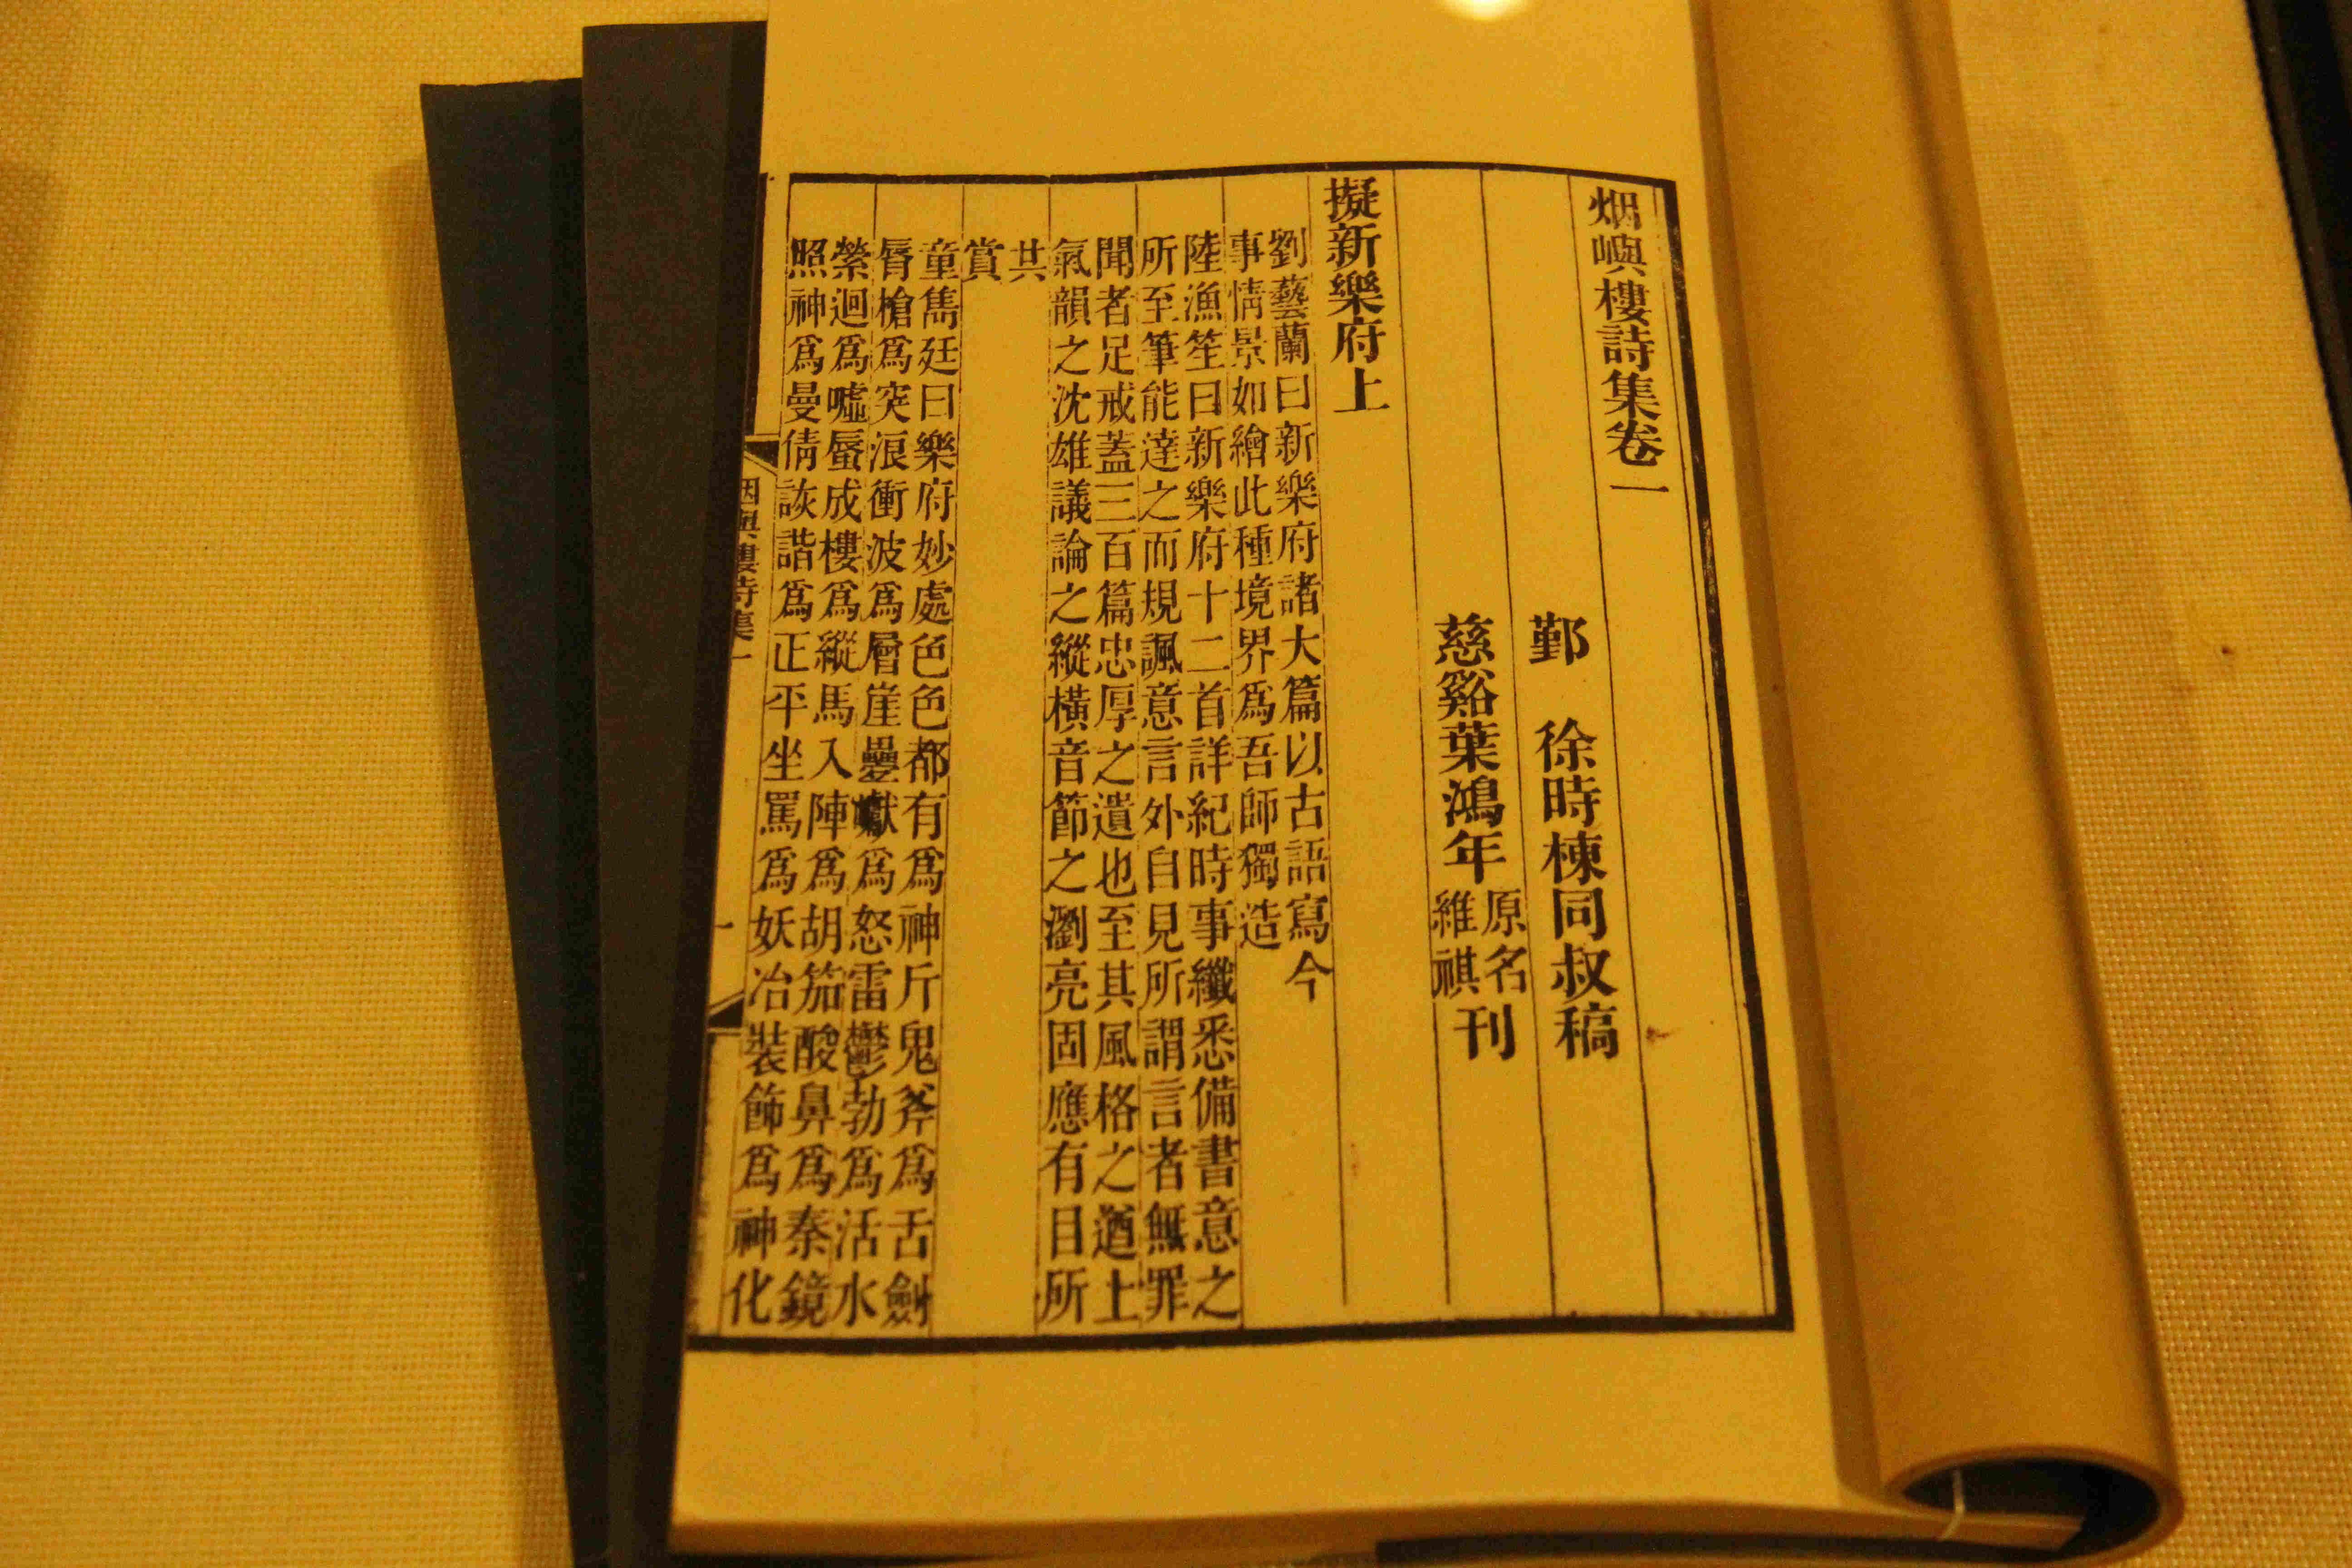 烟嶼樓詩集卷一
鄞　徐時棟同叔稿
慈谿葉鴻年原名維祺刊
擬新樂府上
劉藝蘭曰新樂府諸大篇以古語寫今
事情景如繪此種境界爲吾師獨造
陸漁笙曰新樂府十二首詳紀時事纖悉備書意之
所至筆能達之而規諷意言外自見所謂言者無罪
聞者足戒蓋三百篇忠厚之遺也至其風格之遒上
氣韻之沈雄議論之縱橫音節之瀏亮固應有目所
共
賞
童雋廷曰樂府妙處色色都有爲神斤鬼斧爲舌劍
脣槍爲突浪衝波爲層崖疊巘爲怒雷鬱勃爲活水
縈迴爲噓蜃成樓爲縱馬入陣爲胡笳酸鼻爲秦鏡
照神爲曼倩詼諧爲正平坐罵爲妖冶裝飾爲神化
烟嶼樓詩集一
一